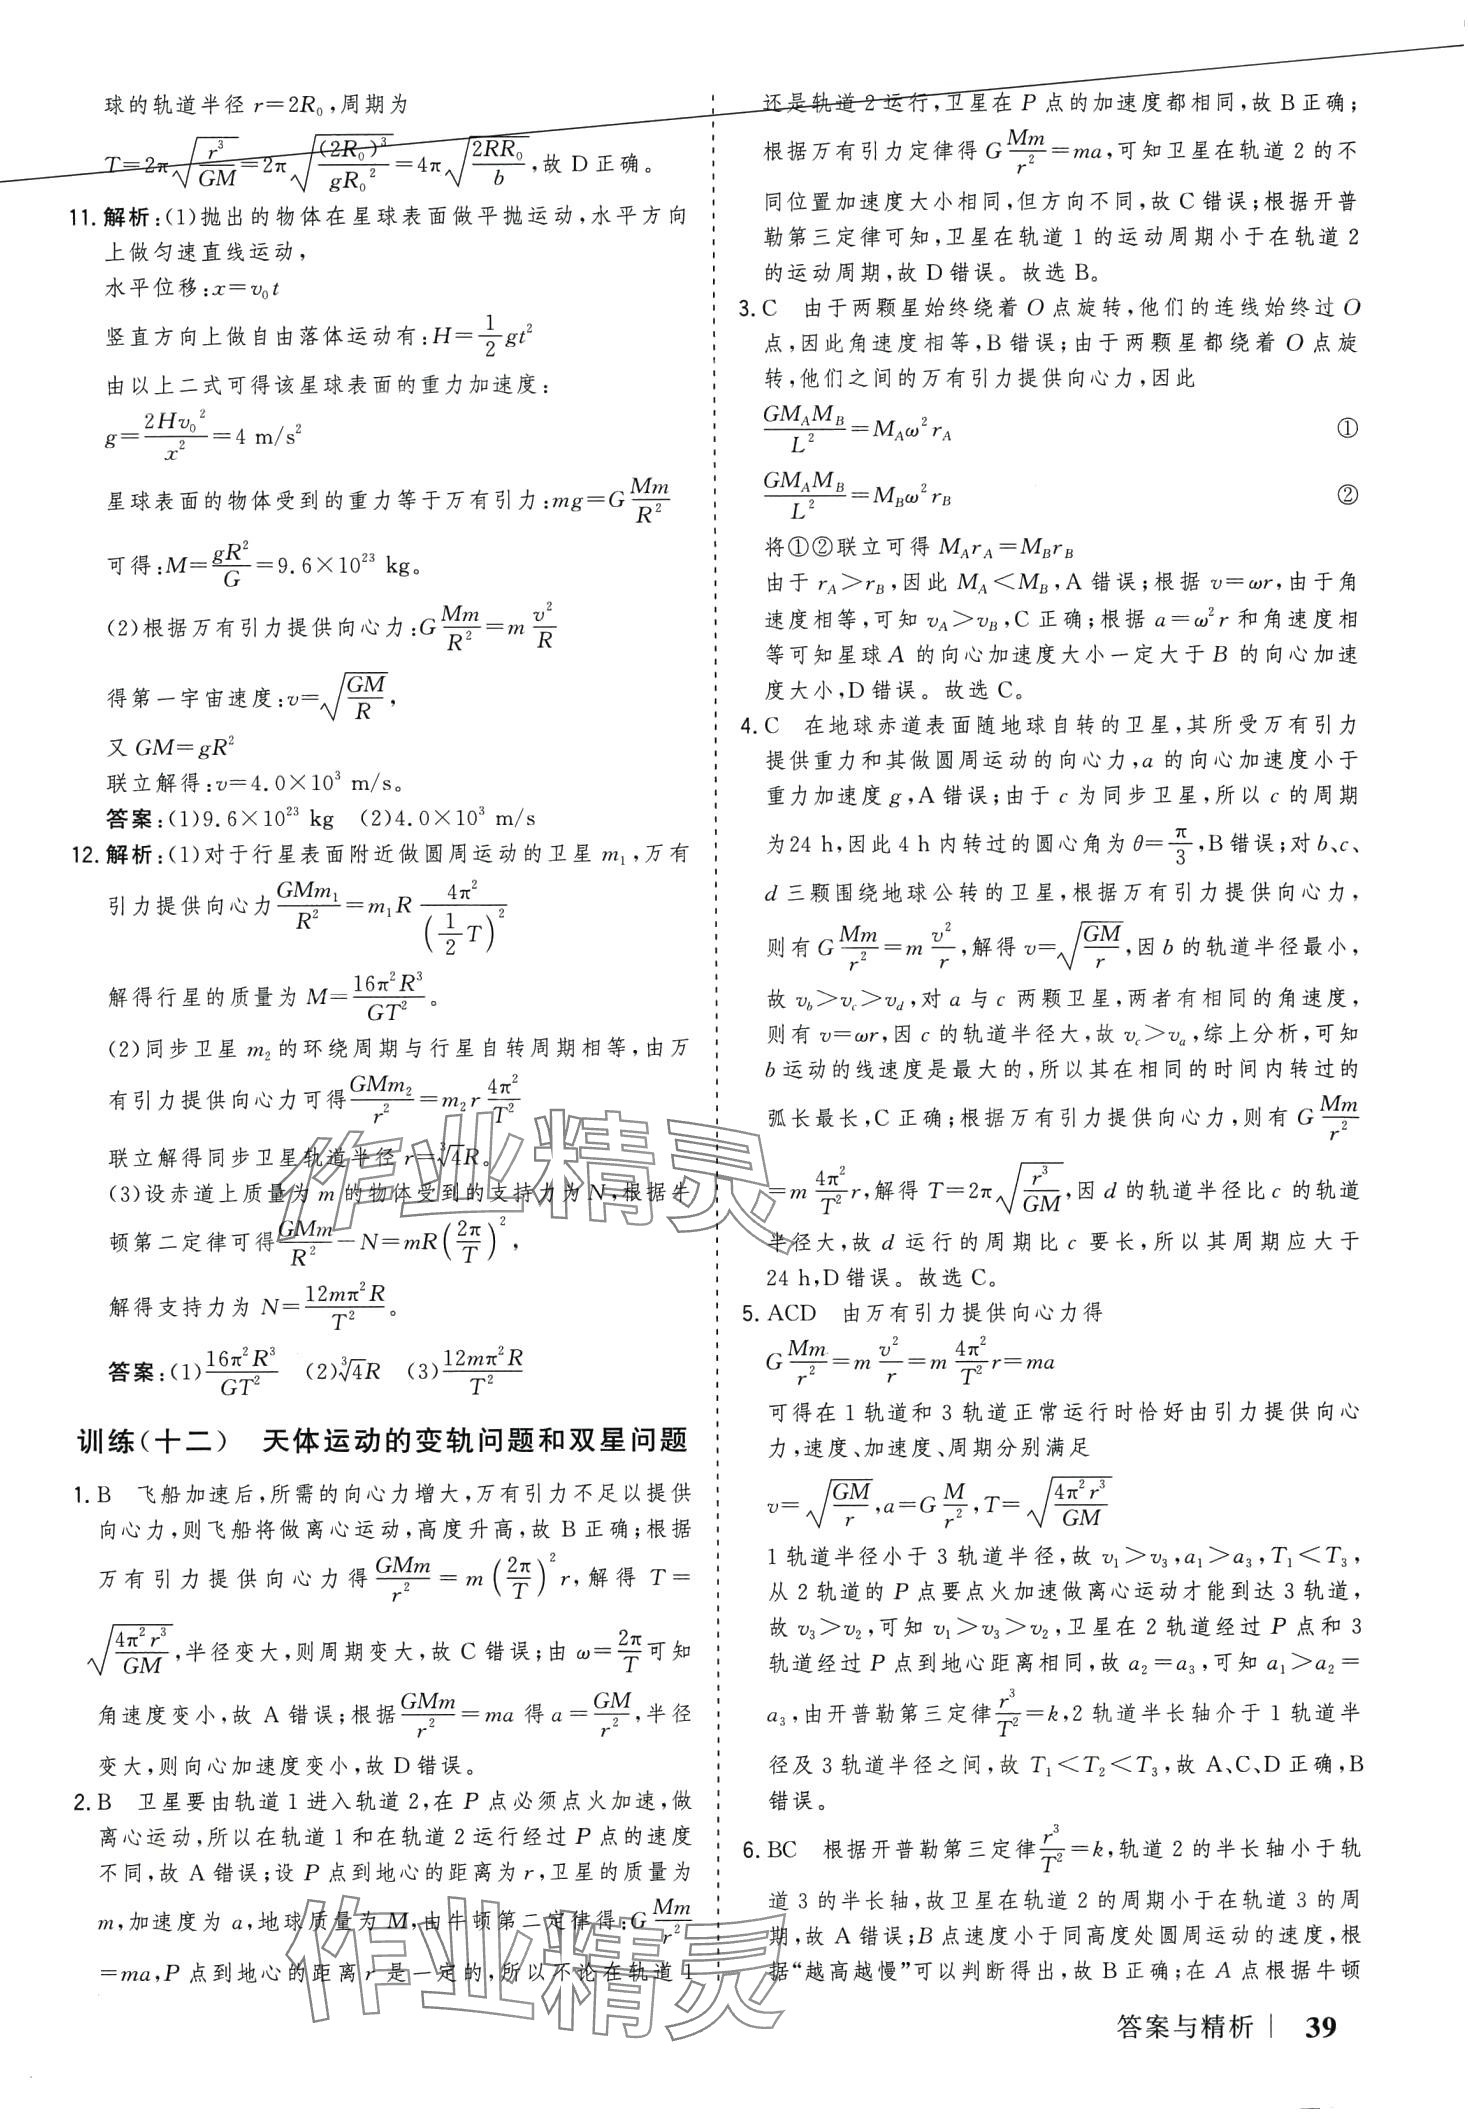 球的轨道半径 r=2R₀,周期为
T=2π√(r³/GM)=2π√((2R₀)³/gR₀²)=4π√(2RR₀/b),故 D 正确。
11. 解析:(1)抛出的物体在星球表面做平抛运动,水平方向
上做匀速直线运动,
水平位移:x=v₀t
竖直方向上做自由落体运动有:H=1/2 gt²
由以上二式可得该星球表面的重力加速度:
g=2Hv₀²/x²=4 m/s²
星球表面的物体受到的重力等于万有引力:mg=G Mm/R²
可得:M=gR²/G=9.6×10²³ kg。
(2)根据万有引力提供向心力:G Mm/R²=m v²/R
得第一宇宙速度:v=√(GM/R),
又 GM=gR²
联立解得:v=4.0×10³ m/s。
答案:(1)9.6×10²³ kg (2)4.0×10³ m/s
12. 解析:(1)对于行星表面附近做圆周运动的卫星 m₁,万有
引力提供向心力 GMm₁/R²=m₁R 4π²/(1/2 T)²
解得行星的质量为 M=16π²R³/GT²。
(2)同步卫星 m₂ 的环绕周期与行星自转周期相等,由万
有引力提供向心力可得 GMm₂/r²=m₂r 4π²/T²
联立解得同步卫星轨道半径 r=³√4R。
(3)设赤道上质量为 m 的物体受到的支持力为 N,根据牛
顿第二定律可得 GMm/R²-N=mR(2π/T)²,
解得支持力为 N=12mπ²R/T²。
答案:(1)16π²R³/GT² (2)³√4R (3)12mπ²R/T²
训练(十二) 天体运动的变轨问题和双星问题
1. B 飞船加速后,所需的向心力增大,万有引力不足以提供
向心力,则飞船将做离心运动,高度升高,故 B 正确;根据
万有引力提供向心力得 GMm/r²=m(2π/T)²r,解得 T=
√(4π²r³/GM),半径变大,则周期变大,故 C 错误;由 ω=2π/T 可知
角速度变小,故 A 错误;根据 GMm/r²=ma 得 a=GM/r²,半径
变大,则向心加速度变小,故 D 错误。
2. B 卫星要由轨道 1 进入轨道 2,在 P 点必须点火加速,做
离心运动,所以在轨道 1 和在轨道 2 运行经过 P 点的速度
不同,故 A 错误;设 P 点到地心的距离为 r,卫星的质量为
m,加速度为 a,地球质量为 M,由牛顿第二定律得:G Mm/r²
=ma,P 点到地心的距离 r 是一定的,所以不论在轨道 1
还是轨道 2 运行,卫星在 P 点的加速度都相同,故 B 正确;
根据万有引力定律得 G Mm/r²=ma,可知卫星在轨道 2 的不
同位置加速度大小相同,但方向不同,故 C 错误;根据开普
勒第三定律可知,卫星在轨道 1 的运动周期小于在轨道 2
的运动周期,故 D 错误。故选 B。
3. C 由于两颗星始终绕着 O 点旋转,他们的连线始终过 O
点,因此角速度相等,B 错误;由于两颗星都绕着 O 点旋
转,他们之间的万有引力提供向心力,因此
GM_AM_B/L²=M_Aω²r_A ①
GM_AM_B/L²=M_Bω²r_B ②
将①②联立可得 M_Ar_A=M_Br_B
由于 r_A>r_B,因此 M_A<M_B,A 错误;根据 v=ωr,由于角
速度相等,可知 v_A>v_B,C 正确;根据 a=ω²r 和角速度相
等可知星球 A 的向心加速度大小一定大于 B 的向心加速
度大小,D 错误。故选 C。
4. C 在地球赤道表面随地球自转的卫星,其所受万有引力
提供重力和其做圆周运动的向心力,a 的向心加速度小于
重力加速度 g,A 错误;由于 c 为同步卫星,所以 c 的周期
为 24 h,因此 4 h 内转过的圆心角为 θ=π/3,B 错误;对 b、c、
d 三颗围绕地球公转的卫星,根据万有引力提供向心力,
则有 G Mm/r²=m v²/r,解得 v=√(GM/r),因 b 的轨道半径最小,
故 v_b>v_c>v_d,对 a 与 c 两颗卫星,两者有相同的角速度,
则有 v=ωr,因 c 的轨道半径大,故 v_c>v_a,综上分析,可知
b 运动的线速度是最大的,所以其在相同的时间内转过的
弧长最长,C 正确;根据万有引力提供向心力,则有 G Mm/r²
=m 4π²/T² r,解得 T=2π√(r³/GM),因 d 的轨道半径比 c 的轨道
半径大,故 d 运行的周期比 c 要长,所以其周期应大于
24 h,D 错误。故选 C。
5. ACD 由万有引力提供向心力得
G Mm/r²=m v²/r=m 4π²/T² r=ma
可得在 1 轨道和 3 轨道正常运行时恰好由引力提供向心
力,速度、加速度、周期分别满足
v=√(GM/r),a=G M/r²,T=√(4π²r³/GM)
1 轨道半径小于 3 轨道半径,故 v₁>v₃,a₁>a₃,T₁<T₃,
从 2 轨道的 P 点要点火加速做离心运动才能到达 3 轨道,
故 v₃>v₂,可知 v₁>v₃>v₂,卫星在 2 轨道经过 P 点和 3
轨道经过 P 点到地心距离相同,故 a₂=a₃,可知 a₁>a₂=
a₃,由开普勒第三定律 r³/T²=k,2 轨道半长轴介于 1 轨道半
径及 3 轨道半径之间,故 T₁<T₂<T₃,故 A、C、D 正确,B
错误。
6. BC 根据开普勒第三定律 r³/T²=k,轨道 2 的半长轴小于轨
道 3 的半长轴,故卫星在轨道 2 的周期小于在轨道 3 的周
期,故 A 错误;B 点速度小于同高度处圆周运动的速度,根
据“越高越慢”可以判断得出,故 B 正确;在 A 点根据牛顿
作业精灵
作业精灵
答案与精析 | 39